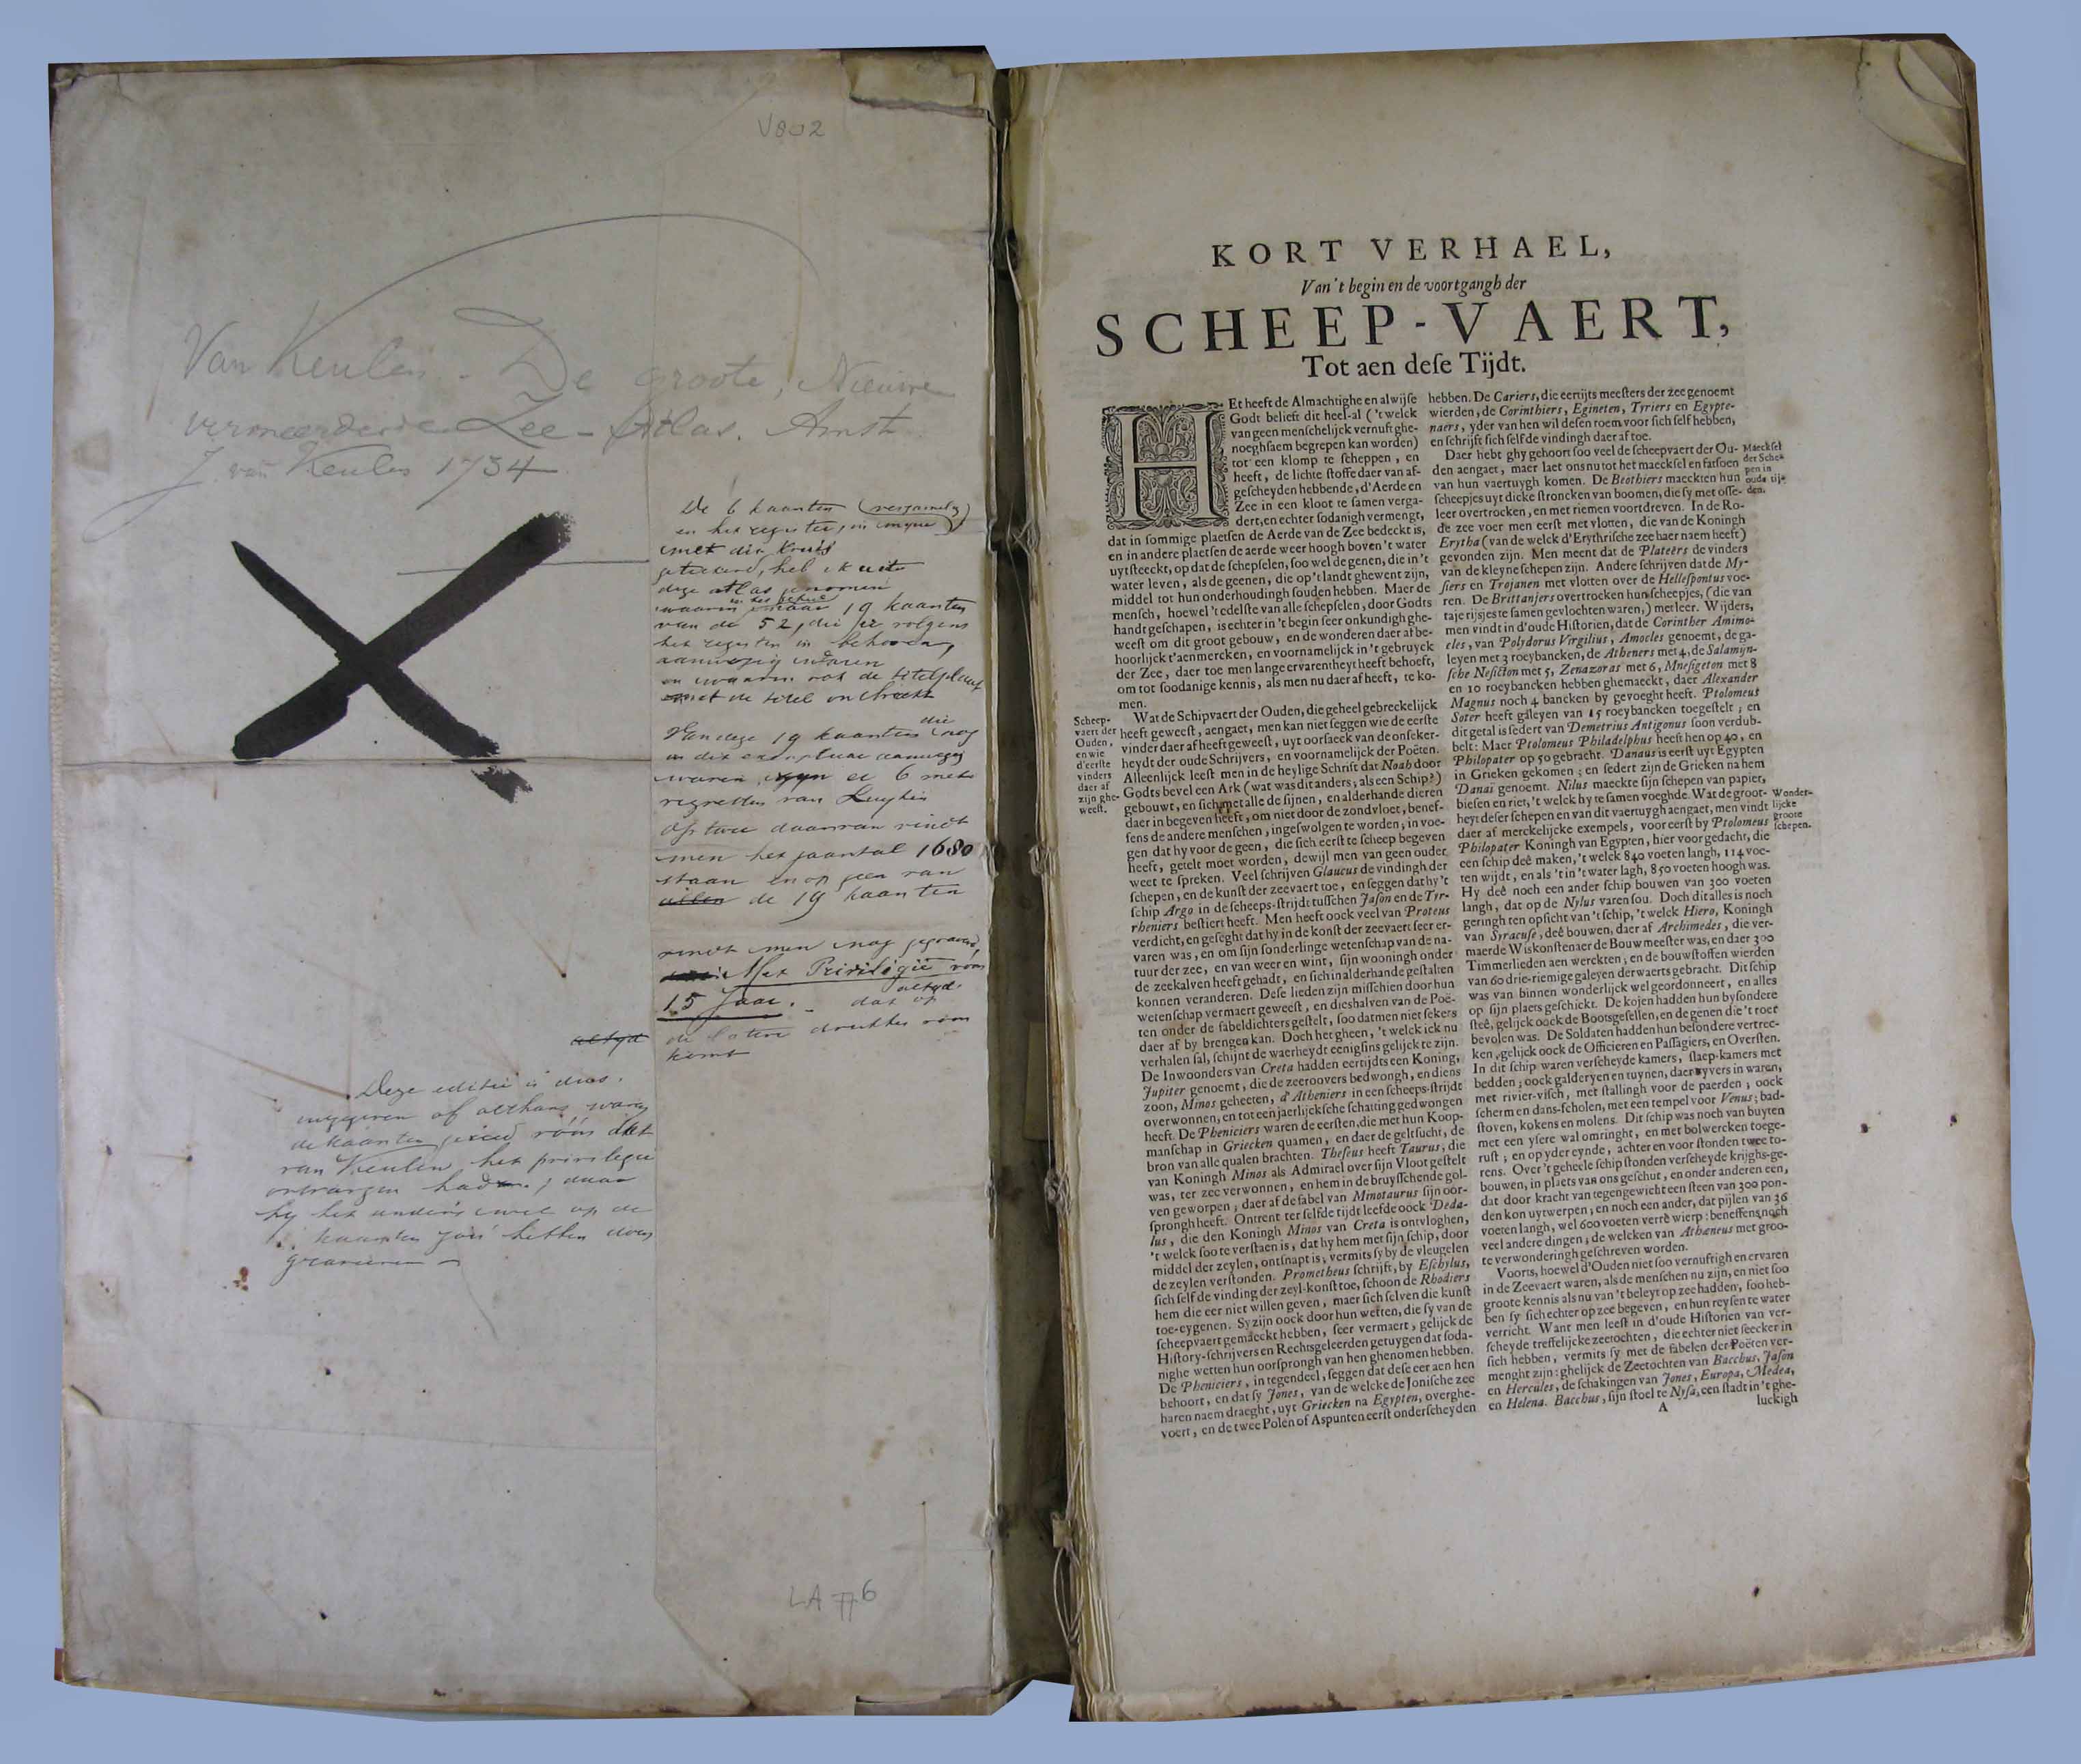 V802
Van Keulen. De groote, Nieuwe
vermeerderde Zee-Atlas. Amst.
J. van Keulen 1734
De 6 kaarten
en het register, in
met dit kruis
geteekend, heb ik uit
deze atlas genomen
waarin maar 19 kaarten
van de 52, die er volgens
het register in behooren,
aanwezig waren
en waarin ook de titelplaat
met de titel ontbreekt
Van deze 19 kaarten die nog
in dit exemplaar aanwezig
waren, zyn er 6 met
vignetten van Luyken
Op twee daarvan vindt
men het jaartal 1680
staan en op geen van
allen de 19 kaarten
vindt men nog gegraveerd,
Met Privilegie voor
15 Jaar. - dat altyd op
de latere drukken voor
komt
altyd
Deze editie is dus
uitgegeven of althans waren
de kaarten gereed vóór dat
van Keulen het privilegie
ontvangen had, daar
hy het anders wel op de
kaarten zou hebben doen
graveeren -
LA 776
KORT VERHAEL,
Van 't begin en de voortgangh der
SCHEEP-VAERT,
Tot aen dese Tijdt.
HEt heeft de Almachtighe en alwijse
Godt belieft dit heel-al ('t welck
van geen menschelijck vernuft ghe-
noeghsaem begrepen kan worden)
tot een klomp te scheppen, en
heeft, de lichte stoffe daer van af-
gescheyden hebbende, d'Aerde en
Zee in een kloot te samen verga-
dert, en echter sodanigh vermengt,
dat in sommige plaetsen de Aerde van de Zee bedeckt is,
en in andere plaetsen de aerde weer hoogh boven 't water
uytsteeckt, op dat de schepselen, soo wel de genen, die in 't
water leven, als de geenen, die op 't landt ghewent zijn,
middel tot hun onderhoudingh souden hebben. Maer de
mensch, hoewel 't edelste van alle schepselen, door Godts
handt geschapen, is echter in 't begin seer onkundigh ghe-
weest om dit groot gebouw, en de wonderen daer af be-
hoorlijck t'aenmercken, en voornamelijck in 't gebruyck
der Zee, daer toe men lange ervarentheyt heeft behoeft,
om tot soodanige kennis, als men nu daer af heeft, te ko-
men.
Scheep-
vaert der
Ouden,
en wie
d'eerste
vinders
daer af
zijn ghe-
weest.
Wat de Schipvaert der Ouden, die geheel gebreckelijck
heeft geweest, aengaet, men kan niet seggen wie de eerste
vinder daer af heeft geweest, uyt oorsaeck van de onseker-
heydt der oude Schrijvers, en voornamelijck der Poëten.
Alleenlijck leest men in de heylige Schrift dat Noah door
Godts bevel een Ark (wat was dit anders, als een Schip?)
gebouwt, en sich met alle de sijnen, en alderhande dieren
daer in begeven heeft, om niet door de zondvloet, benef-
fens de andere menschen, ingeswolgen te worden; in voe-
gen dat hy voor de geen, die sich eerst te scheep begeven
heeft, getelt moet worden, dewijl men van geen ouder
weet te spreken. Veel schrijven Glaucus de vindingh der
schepen, en de kunst der zeevaert toe, en seggen dat hy 't
schip Argo in de scheeps-strijdt tusschen Jason en de Tyr-
rheniers bestiert heeft. Men heeft oock veel van Proteus
verdicht, en geseght dat hy in de konst der zeevaert seer er-
varen was, en om sijn sonderlinge wetenschap van de na-
tuur der zee, en van weer en wint, sijn wooningh onder
de zeekalven heeft gehadt, en sich in alderhande gestalten
konnen veranderen. Dese lieden zijn misschien door hun
wetenschap vermaert geweest, en dieshalven van de Poë-
ten onder de fabeldichters gestelt, soo datmen niet sekers
daer af by brengen kan. Doch het gheen, 't welck ick nu
verhalen sal, schijnt de waerheydt eenigsins gelijck te zijn.
De Inwoonders van Creta hadden eertijdts een Koning,
Jupiter genoemt, die de zeeroovers bedwongh, en diens
zoon, Minos geheeten, d'Atheniers in een scheeps-strijdt
overwonnen, en tot een jaerlijcksche schatting gedwongen
heeft. De Pheniciers waren de eersten, die met hun Koop-
manschap in Griecken quamen, en daer de geltsucht, de
bron van alle qualen brachten. Theseus heeft Taurus, die
van Koningh Minos als Admirael over sijn Vloot gestelt
was, ter zee verwonnen, en hem in de bruysschende gol-
ven geworpen; daer af de fabel van Minotaurus sijn oor-
sprongh heeft. Ontrent ter selfde tijdt leefde oock Deda-
lus, die den Koningh Minos van Creta is ontvloghen,
't welck soo te verstaen is, dat hy hem met sijn schip, door
middel der zeylen, ontsnapt is, vermits sy by de vleugelen
de zeylen verstonden. Prometheus schrijft, by Eschylus,
sich self de vinding der zeyl-konst toe, schoon de Rhodiers
hem die eer niet willen geven, maer sich selven die kunst
toe-eygenen. Sy zijn oock door hun wetten, die sy van de
scheepvaert gemaeckt hebben, seer vermaert, gelijck de
History-schrijvers en Rechtsgeleerden getuygen dat soda-
nighe wetten hun oorsprongh van hen ghenomen hebben.
De Pheniciers, in tegendeel, seggen dat dese eer aen hen
behoort, en dat sy Jones, van de welcke de Jonische zee
haren naem draeght, uyt Griecken na Egypten, overghe-
voert, en de twee Polen of Aspunten eerst onderscheyden
hebben. De Cariers, die eertijts meesters der zee genoemt
wierden, de Corinthiers, Egineten, Tyriers en Egypte-
naers, yder van hen wil desen roem voor sich self hebben,
en schrijft sich selfde vindingh daer af toe.
Daer hebt ghy gehoort soo veel de scheepvaert der Ou-
den aengaet, maer laet ons nu tot het maecksel en fatsoen
van hun vaertuygh komen. De Beothiers maeckten hun
scheepjes uyt dicke stroncken van boomen, die sy met osse-
leer overtrocken, en met riemen voortdreven. In de Ro-
de zee voer men eerst met vlotten, die van de Koningh
Erytha (van de welck d'Erythrische zee haer naem heeft)
gevonden zijn. Men meent dat de Plateërs de vinders
van de kleyne schepen zijn. Andere schrijven dat de My-
siers en Trojanen met vlotten over de Hellespontus voe-
ren. De Brittanjers overtrocken hun scheepjes, (die van
taje rijsjes te samen gevlochten waren,) met leer. Wijders,
men vindt in d'oude Historien, dat de Corinther Amimo-
cles, van Polydorus Virgilius, Amocles genoemt, de ga-
leyen met 3 roeybancken, de Atheners met 4, de Salamijn-
sche Nesicton met 5, Zenazoras met 6, Mnesigeton met 8
en 10 roeybancken hebben ghemaeckt, daer Alexander
Magnus noch 4 bancken by gevoeght heeft. Ptolomeus
Soter heeft galeyen van 15 roeybancken toegestelt; en
dit getal is sedert van Demetrius Antigonus soon verdub-
belt: Maer Ptolomeus Philadelphus heeft hen op 40, en
Philopater op 50 gebracht. Danaus is eerst uyt Egypten
in Grieken gekomen; en sedert zijn de Grieken na hem
Danai genoemt. Nilus maeckte sijn schepen van papier,
biesen en riet, 't welck hy te samen voeghde. Wat de groot-
heyt deser schepen en van dit vaertuygh aengaet, men vindt
daer af merckelijcke exempels, voor eerst by Ptolomeus
Philopater Koningh van Egypten, hier voor gedacht, die
een schip deê maken, 't welck 840 voeten langh, 114 voe-
ten wijdt, en als 't in 't water lagh, 850 voeten hoogh was.
Hy deê noch een ander schip bouwen van 300 voeten
langh, dat op de Nylus varen sou. Doch dit alles is noch
geringh ten opsicht van 't schip, 't welck Hiero, Koningh
van Syracuse, deê bouwen, daer af Archimedes, die ver-
maerde Wiskonstenaer de Bouwmeester was, en daer 300
Timmerlieden aen werckten; en de bouwstoffen wierden
van 60 drie-riemige galeyen derwaerts gebracht. Dit schip
was van binnen wonderlijck wel geordonneert, en alles
op sijn plaets geschickt. De kojen hadden hun bysondere
steê, gelijck oock de Bootsgesellen, en de genen die 't roer
bevolen was. De Soldaten hadden hun besondere vertrec-
ken, gelijck oock de Officieren en Passagiers, en Oversten.
In dit schip waren verscheyde kamers, slaep-kamers met
bedden; oock galderyen en tuynen, daer vyvers in waren,
met rivier-visch, met stallingh voor de paerden; oock
scherm en dans-scholen, met een tempel voor Venus; bad-
stoven, kokens en molens. Dit schip was noch van buyten
met een ysere wal omringht, en met bolwercken toege-
rust; en op yder eynde, achter en voor stonden twee to-
rens. Over 't geheele schip stonden verscheyde krijghs-ge-
bouwen, in plaets van ons geschut, en onder anderen een,
dat door kracht van tegengewicht een steen van 300 pon-
den kon uytwerpen; en noch een ander, dat pijlen van 36
voeten langh, wel 600 voeten verrê wierp: beneffens noch
veel andere dingen; de welcken van Athæneus met groo-
te verwonderingh geschreven worden.
Voorts, hoewel d'Ouden niet soo vernuftigh en ervaren
in de Zeevaert waren, als de menschen nu zijn, en niet soo
groote kennis als nu van 't beleyt op zee hadden, soo heb-
ben sy sich echter op zee begeven, en hun reysen te water
verricht. Want men leest in d'oude Historien van ver-
scheyde treffelijcke zeetochten, die echter niet seecker in
sich hebben, vermits sy met de fabelen der Poëten ver-
menght zijn: ghelijck de Zeetochten van Bacchus, Jason
en Hercules, de schakingen van Jones, Europa, Medea,
en Helena. Bacchus, sijn stoel te Nysa, een stadt in 't ghe-
Maecksel
der Sche-
pen in
oude tij-
den.
Wonder-
lijcke
groote
schepen.
A
luckigh